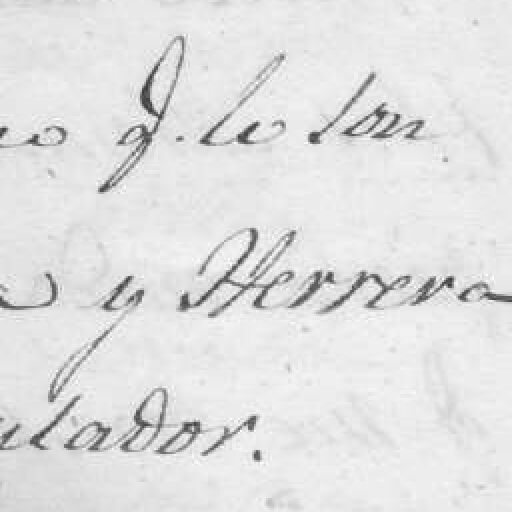 q. lo son
y Herrera
ulador.